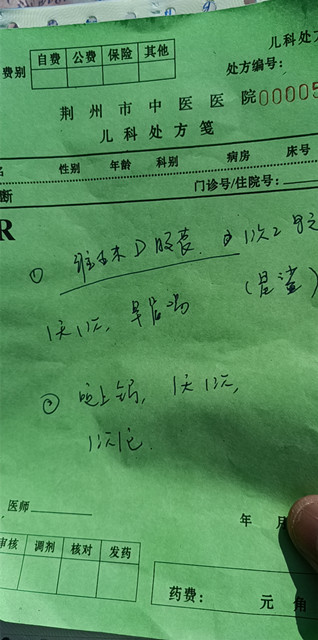 儿科处方
费别 自费 公费 保险 其他
处方编号:
荆州市中医医院 00005
儿科处方笺
名 性别 年龄 科别 病房 床号
断 门诊号/住院号:
R
① 维生素D胶囊. 1次2
1天1次, 早
(星鲨)
② 1天1次,
1次1包.
医师
年 月
审核 调剂 核对 发药
药费: 元 角